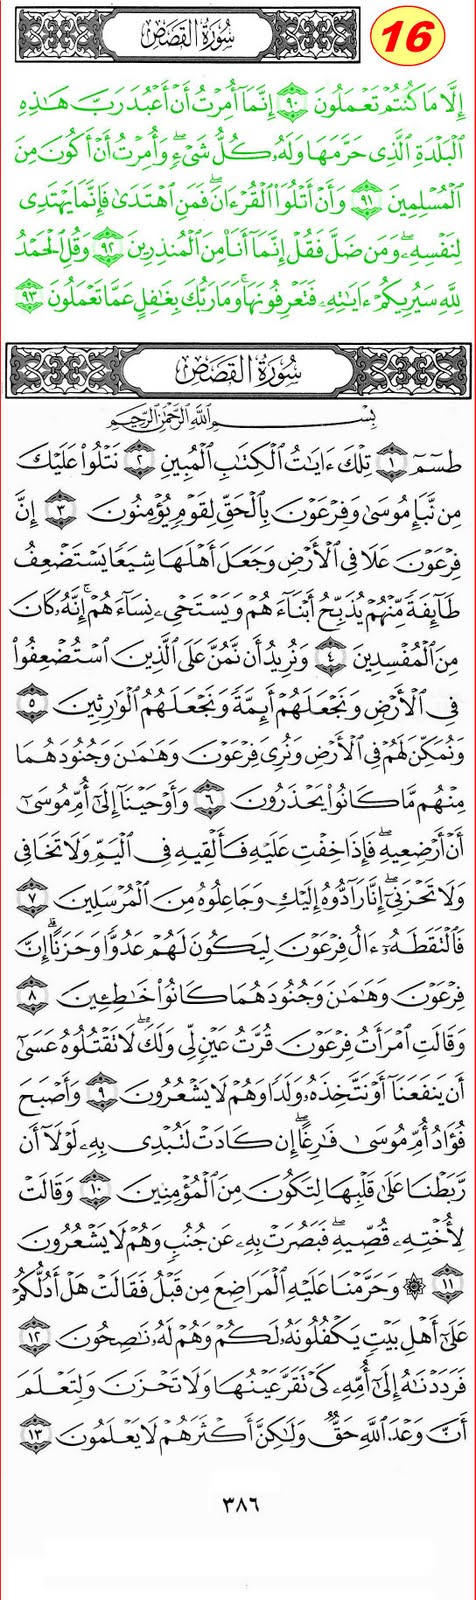 سُورَةُ القَصَصِ
16
إِلَّا مَا كُنتُمْ تَعْمَلُونَ ٩٠ إِنَّمَآ أُمِرْتُ أَنْ أَعْبُدَ رَبَّ هَٰذِهِ
الْبَلْدَةِ الَّذِى حَرَّمَهَا وَلَهُۥ كُلُّ شَىْءٍ ۖ وَأُمِرْتُ أَنْ أَكُونَ مِنَ
الْمُسْلِمِينَ ٩١ وَأَنْ أَتْلُوَا۟ الْقُرْءَانَ ۖ فَمَنِ اهْتَدَىٰ فَإِنَّمَا يَهْتَدِى
لِنَفْسِهِۦ ۖ وَمَن ضَلَّ فَقُلْ إِنَّمَآ أَنَا۠ مِنَ الْمُنذِرِينَ ٩٢ وَقُلِ الْحَمْدُ
لِلَّهِ سَيُرِيكُمْ ءَايَٰتِهِۦ فَتَعْرِفُونَهَا ۚ وَمَا رَبُّكَ بِغَٰفِلٍ عَمَّا تَعْمَلُونَ ٩٣
سُورَةُ القَصَصِ
بِسْمِ اللَّهِ الرَّحْمَٰنِ الرَّحِيمِ
طسٓمٓ ١ تِلْكَ ءَايَٰتُ الْكِتَٰبِ الْمُبِينِ ٢ نَتْلُوا۟ عَلَيْكَ
مِن نَّبَإِ مُوسَىٰ وَفِرْعَوْنَ بِالْحَقِّ لِقَوْمٍ يُؤْمِنُونَ ٣ إِنَّ
فِرْعَوْنَ عَلَا فِى الْأَرْضِ وَجَعَلَ أَهْلَهَا شِيَعًا يَسْتَضْعِفُ
طَآئِفَةً مِّنْهُمْ يُذَبِّحُ أَبْنَآءَهُمْ وَيَسْتَحْىِۦ نِسَآءَهُمْ ۚ إِنَّهُۥ كَانَ
مِنَ الْمُفْسِدِينَ ٤ وَنُرِيدُ أَن نَّمُنَّ عَلَى الَّذِينَ اسْتُضْعِفُوا۟
فِى الْأَرْضِ وَنَجْعَلَهُمْ أَئِمَّةً وَنَجْعَلَهُمُ الْوَٰرِثِينَ ٥
وَنُمَكِّنَ لَهُمْ فِى الْأَرْضِ وَنُرِىَ فِرْعَوْنَ وَهَٰمَٰنَ وَجُنُودَهُمَا
مِنْهُم مَّا كَانُوا۟ يَحْذَرُونَ ٦ وَأَوْحَيْنَآ إِلَىٰٓ أُمِّ مُوسَىٰٓ
أَنْ أَرْضِعِيهِ ۖ فَإِذَا خِفْتِ عَلَيْهِ فَأَلْقِيهِ فِى الْيَمِّ وَلَا تَخَافِى
وَلَا تَحْزَنِىٓ ۖ إِنَّا رَآدُّوهُ إِلَيْكِ وَجَاعِلُوهُ مِنَ الْمُرْسَلِينَ ٧
فَالْتَقَطَهُۥٓ ءَالُ فِرْعَوْنَ لِيَكُونَ لَهُمْ عَدُوًّا وَحَزَنًا ۗ إِنَّ
فِرْعَوْنَ وَهَٰمَٰنَ وَجُنُودَهُمَا كَانُوا۟ خَٰطِـِٔينَ ٨
وَقَالَتِ امْرَأَتُ فِرْعَوْنَ قُرَّتُ عَيْنٍ لِّى وَلَكَ ۖ لَا تَقْتُلُوهُ عَسَىٰٓ
أَن يَنفَعَنَآ أَوْ نَتَّخِذَهُۥ وَلَدًا وَهُمْ لَا يَشْعُرُونَ ٩ وَأَصْبَحَ
فُؤَادُ أُمِّ مُوسَىٰ فَٰرِغًا ۖ إِن كَادَتْ لَتُبْدِى بِهِۦ لَوْلَآ أَن
رَّبَطْنَا عَلَىٰ قَلْبِهَا لِتَكُونَ مِنَ الْمُؤْمِنِينَ ١٠ وَقَالَتْ
لِأُخْتِهِۦ قُصِّيهِ ۖ فَبَصُرَتْ بِهِۦ عَن جُنُبٍ وَهُمْ لَا يَشْعُرُونَ
١١ ۞ وَحَرَّمْنَا عَلَيْهِ الْمَرَاضِعَ مِن قَبْلُ فَقَالَتْ هَلْ أَدُلُّكُمْ
عَلَىٰٓ أَهْلِ بَيْتٍ يَكْفُلُونَهُۥ لَكُمْ وَهُمْ لَهُۥ نَٰصِحُونَ ١٢
فَرَدَدْنَٰهُ إِلَىٰٓ أُمِّهِۦ كَىْ تَقَرَّ عَيْنُهَا وَلَا تَحْزَنَ وَلِتَعْلَمَ
أَنَّ وَعْدَ اللَّهِ حَقٌّ وَلَٰكِنَّ أَكْثَرَهُمْ لَا يَعْلَمُونَ ١٣
٣٨٦